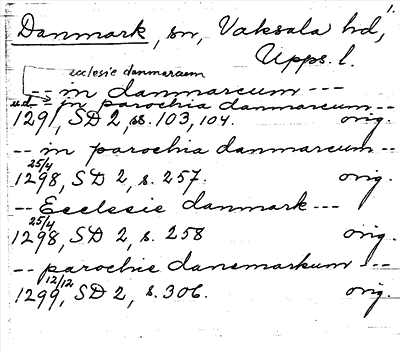 1.
Danmark, sn, Vaksala hd,
Upps. l.
ecclesie danmarcum
-- in danmarcum ---
u.d. -- in parochia danmarcum --
1291, SD 2, ss. 103, 104. orig.
-- in parochia danmarcum --
25/4
1298, SD 2, s. 257. orig.
-- Ecclesie danmark ---
25/4
1298, SD 2, s. 258 orig.
-- parochie danemarkum ---
12/12
1299, SD 2, s. 306. orig.